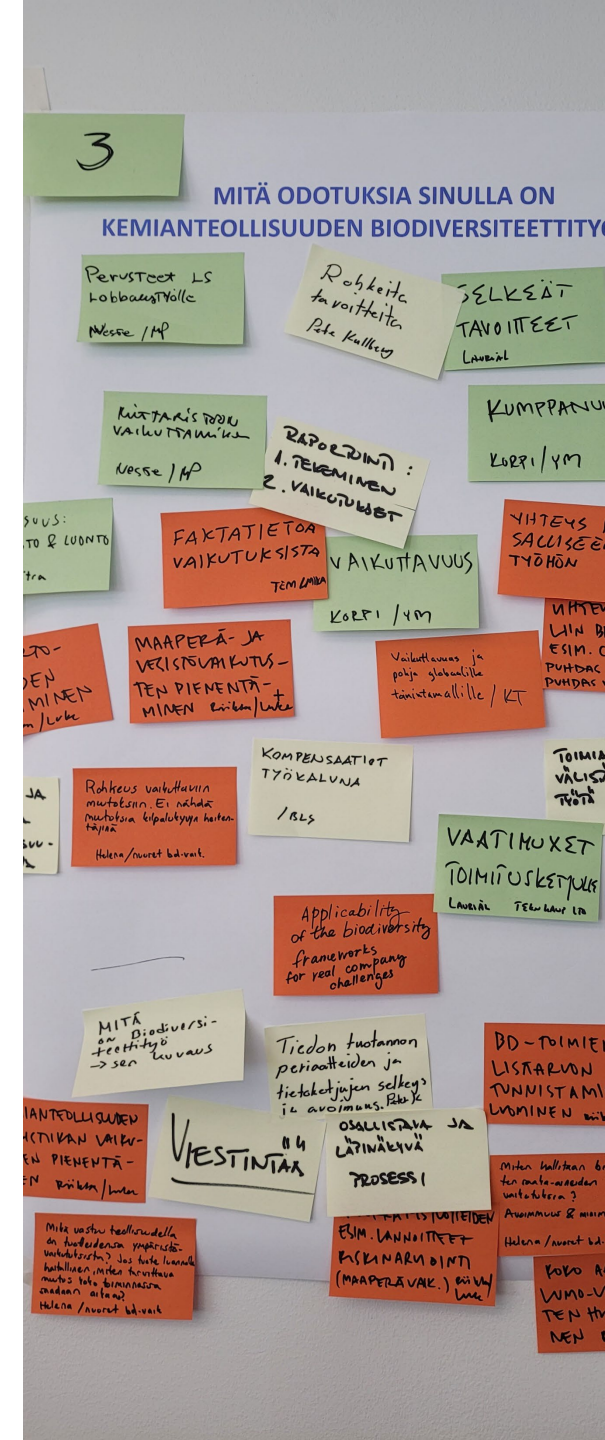 3
MITÄ ODOTUKSIA SINULLA ON
KEMIANTEOLLISUUDEN BIODIVERSITEETTITYÖ
Perusteet LS
Lobbaustyölle
Neste / MP
Rohkeita
tavoitteita
Pete Kullberg
SELKEÄT
TAVOITTEET
LauriÄL
VAIKUTTAMINEN
Neste / MP
RAPORTOINTI :
1. TEKEMINEN
2. VAIKUTUKSET
KUMPPANU
KORPI / YM
SUUS:
TO & LUONTO
tra
FAKTATIETOA
VAIKUTUKSISTA
TEM
VAIKUTTAVUUS
KORPI / YM
YHTEYS
TYÖHÖN
TO-
DEN
MINEN
n / Luke
MAAPERÄ- JA
VESISTÖVAIKUTUS-
TEN PIENENTÄ-
MINEN Riikka / Luke
Vaikuttavuus ja
pohja globaalille
toimintamallille / KT
LIIN
ESIM.
PUHDAS
PUHDAS
JA
SUU-
A
Rohkeus vaikuttaviin
muutoksiin. Ei nähdä
muutoksia kilpailukyvyn heiken-
täjinä
Helena / nuoret bd-vaik.
KOMPENSAATIOT
TYÖKALUNA
/ BLS
TOIMIA
VÄLIS
TYÖTÄ
VAATIMUKSET
TOIMITUSKETJUILLE
LauriÄL
Applicability
of the biodiversity
frameworks
for real company
challenges
MITÄ
on Biodiversi-
teettityö
→ sen kuvaus
Tiedon tuotannon
periaatteiden ja
tietoketjujen selkeys
ja avoimuus. Pete K
BD-TOIMIEN
LISÄARVON
TUNNISTAMI
LUOMINEN
IANTEOLLISUUDEN
VAIKU-
EN PIENENTÄ-
EN Riikka / Luke
VIESTINTÄÄ
OSALLISTAVA JA
LÄPINÄKYVÄ
PROSESSI
Miten hallitaan
ten raaka-aineiden
vaikutuksia ?
Avoimmuus &
Helena / nuoret bd-
Mikä vastuu teollisuudella
on tuotteidensa ympäristö-
vaikutuksista? Jos tuote luonnolle
haitallinen, miten tarvittava
muutos koko toiminnassa
saadaan aikaan?
Helena / nuoret bd-vaik
TUOTTEIDEN
ESIM. LANNOITTEET
RISKINARVIOINTI
(MAAPERÄVAIK.) Riikka /
Luke
KOKO
LUMO-V
TEN
NEN